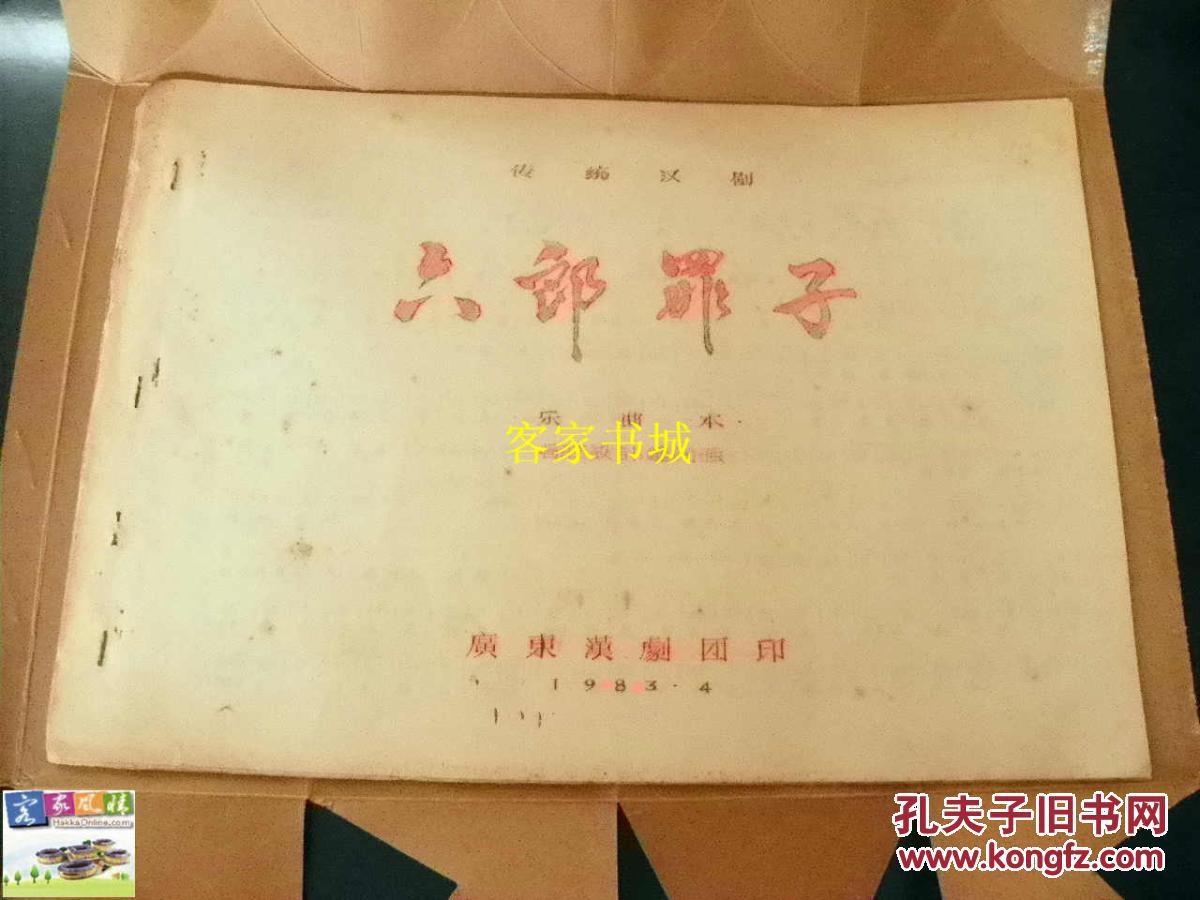 传统汉剧
六郎罪子
乐曲本
客家书城
廣東漢劇团印
1983.4
客家风情
HakkaOnline.com
孔夫子旧书网
www.kongfz.com